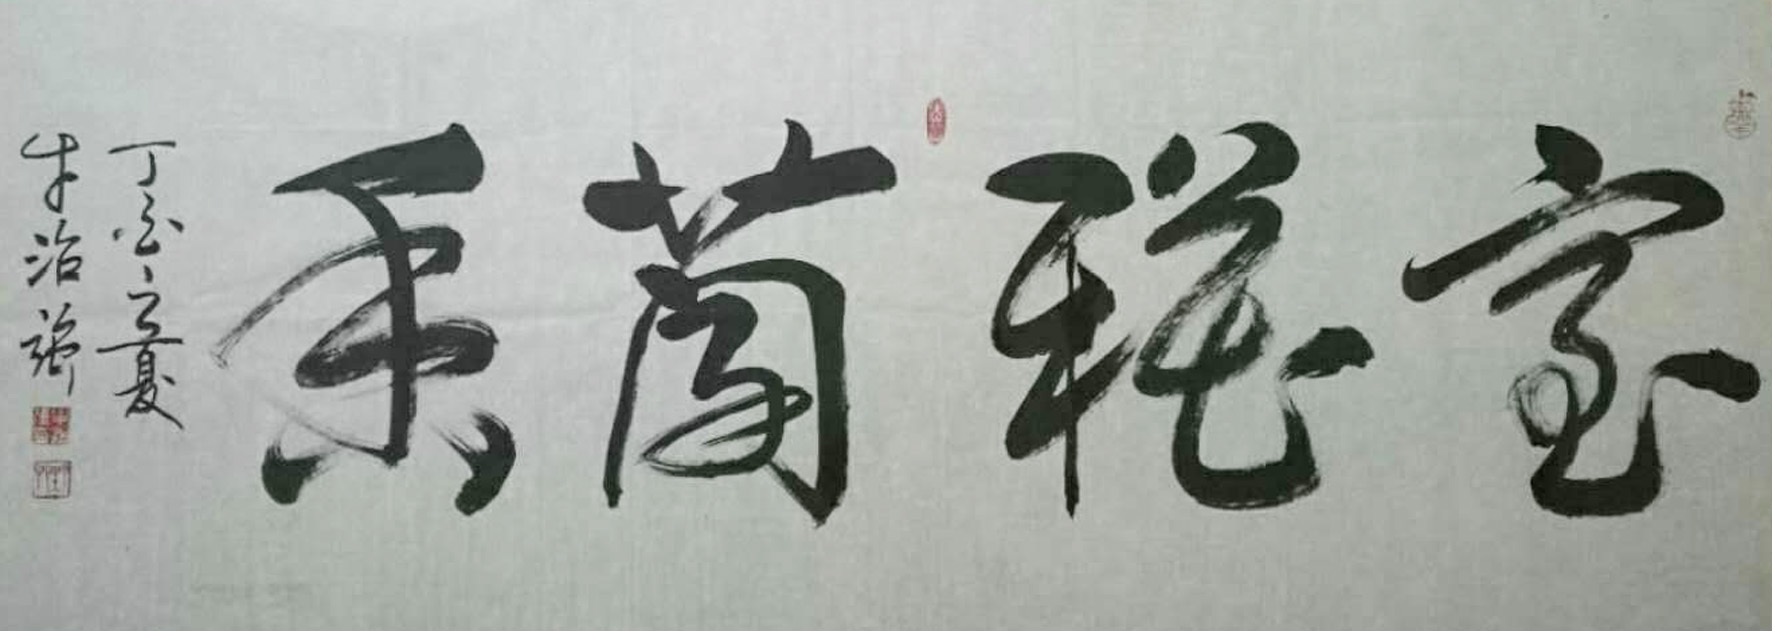 室雅兰香
丁酉之夏
牛治强